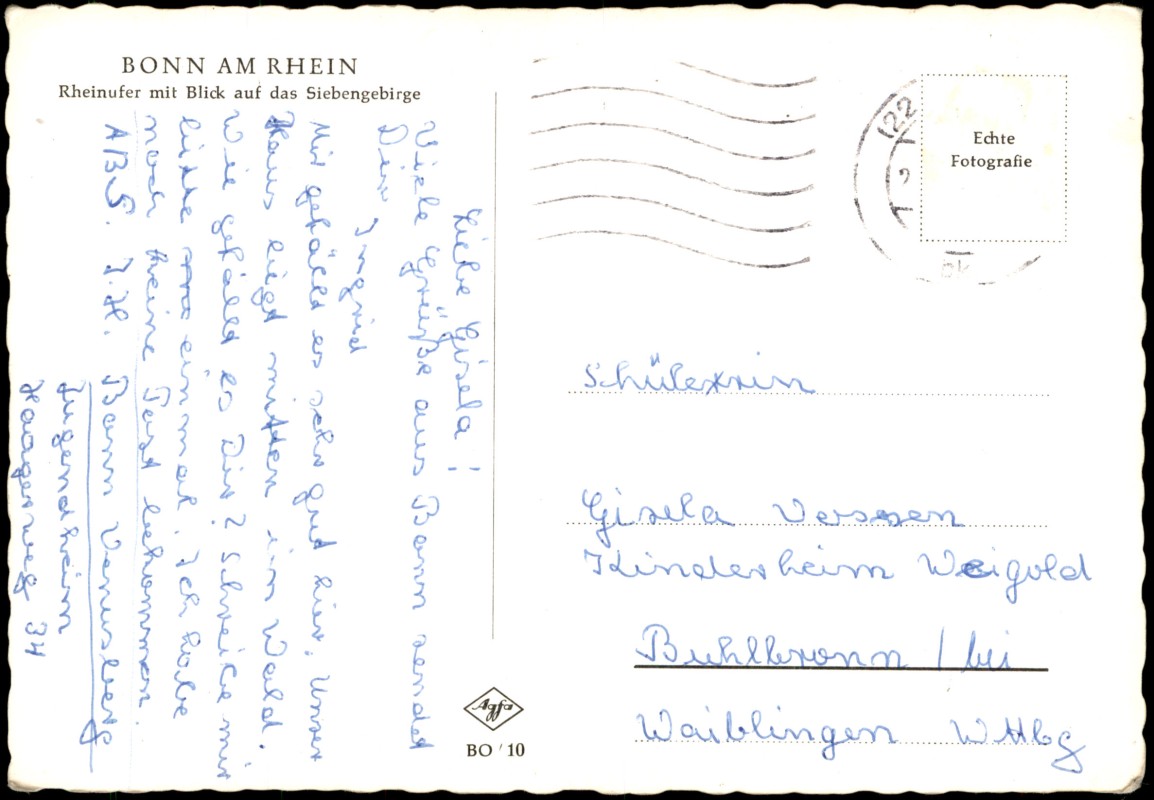 BONN AM RHEIN
Rheinufer mit Blick auf das Siebengebirge
Liebe Gisela!
Viele Grüße aus Bonn sendet
Dir Ingrid
Mir gefällt es sehr gut hier. Unser
Haus liegt mitten im Wald.
Wie gefällt es Dir? Schreibe mir
bitte einmal. Ich habe
noch keine Post bekommen.
ABS. I.H. Bonn Venusberg
Jugendheim
Haagerweg 34
Agfa
BO/10
(22
Echte
Fotografie
Schülerin
Gisela
Kinderheim Weigold
Buhlbronn / bei
Waiblingen Wttbg